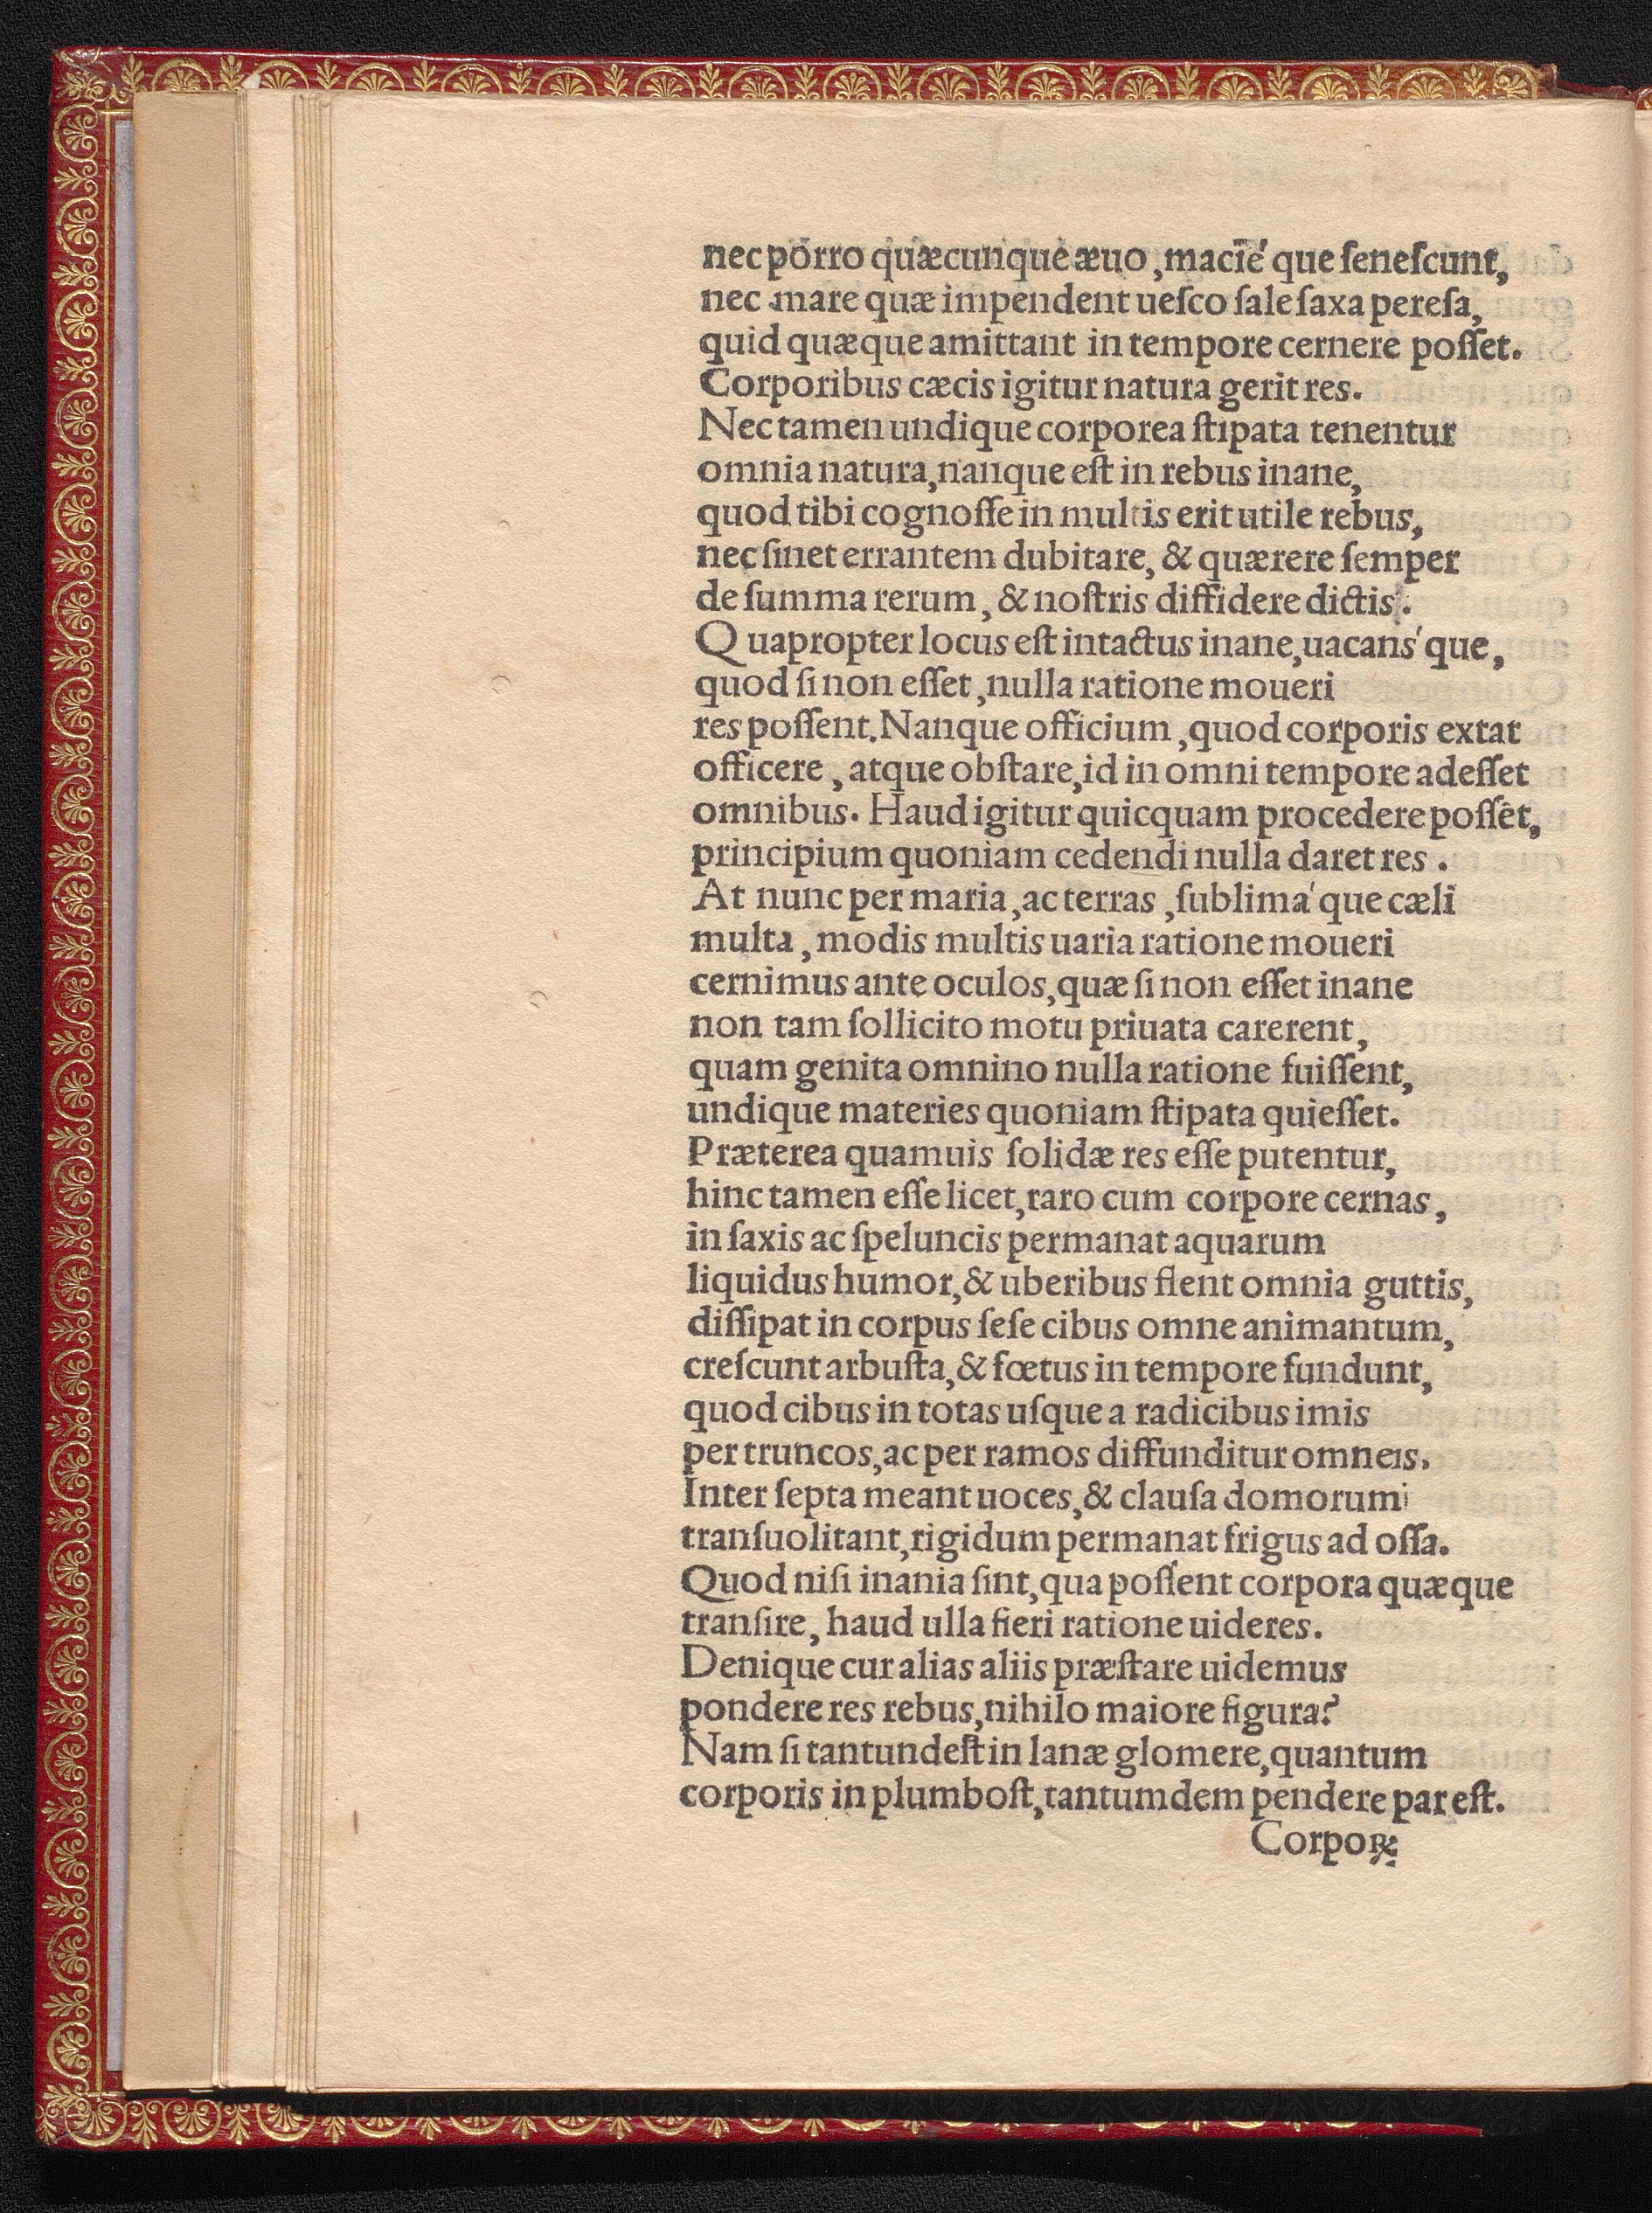 nec porro quæcunque æuo, macie´ que ſeneſcunt,
nec mare quæ impendent ueſco ſale ſaxa pereſa,
quid quæque amittant in tempore cernere poſſet.
Corporibus cæcis igitur natura gerit res.
Nec tamen undique corporea ſtipata tenentur
omnia natura, nanque eſt in rebus inane,
quod tibi cognoſſe in multis erit utile rebus,
nec ſinet errantem dubitare, & quærere ſemper
de ſumma rerum, & noſtris diffidere dictis.
Quapropter locus eſt intactus inane, uacans´ que,
quod ſi non eſſet, nulla ratione moueri
res poſſent. Nanque officium, quod corporis extat
officere, atque obſtare, id in omni tempore adeſſet
omnibus. Haud igitur quicquam procedere poſſet,
principium quoniam cedendi nulla daret res.
At nunc per maria, ac terras, ſublima´ que cæli
multa, modis multis uaria ratione moueri
cernimus ante oculos, quæ ſi non eſſet inane
non tam ſollicito motu priuata carerent,
quam genita omnino nulla ratione fuiſſent,
undique materies quoniam ſtipata quieſſet.
Præterea quamuis ſolidæ res eſſe putentur,
hinc tamen eſſe licet, raro cum corpore cernas,
in ſaxis ac ſpeluncis permanat aquarum
liquidus humor, & uberibus flent omnia guttis,
diſſipat in corpus ſeſe cibus omne animantum,
creſcunt arbuſta, & fœtus in tempore fundunt,
quod cibus in totas uſque a radicibus imis
per truncos, ac per ramos diffunditur omneis.
Inter ſepta meant uoces, & clauſa domorum
tranſuolitant, rigidum permanat frigus ad oſſa.
Quod niſi inania ſint, qua poſſent corpora quæque
tranſire, haud ulla fieri ratione uideres.
Denique cur alias aliis præſtare uidemus
pondere res rebus, nihilo maiore figura?
Nam ſi tantundeſt in lanæ glomere, quantum
corporis in plumboſt, tantumdem pendere par eſt.
Corpoꝝ